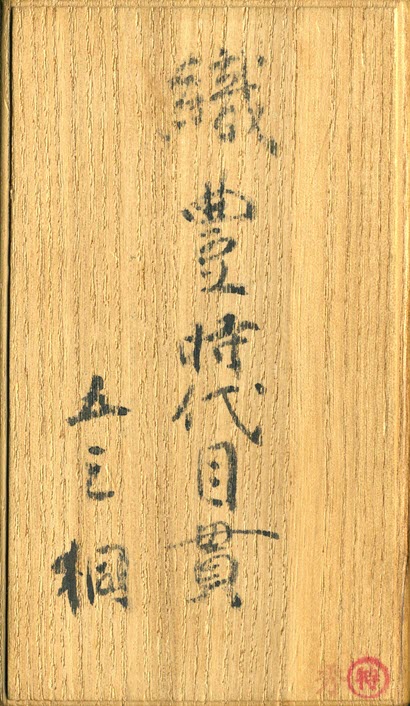 織豊時代目貫
五三桐